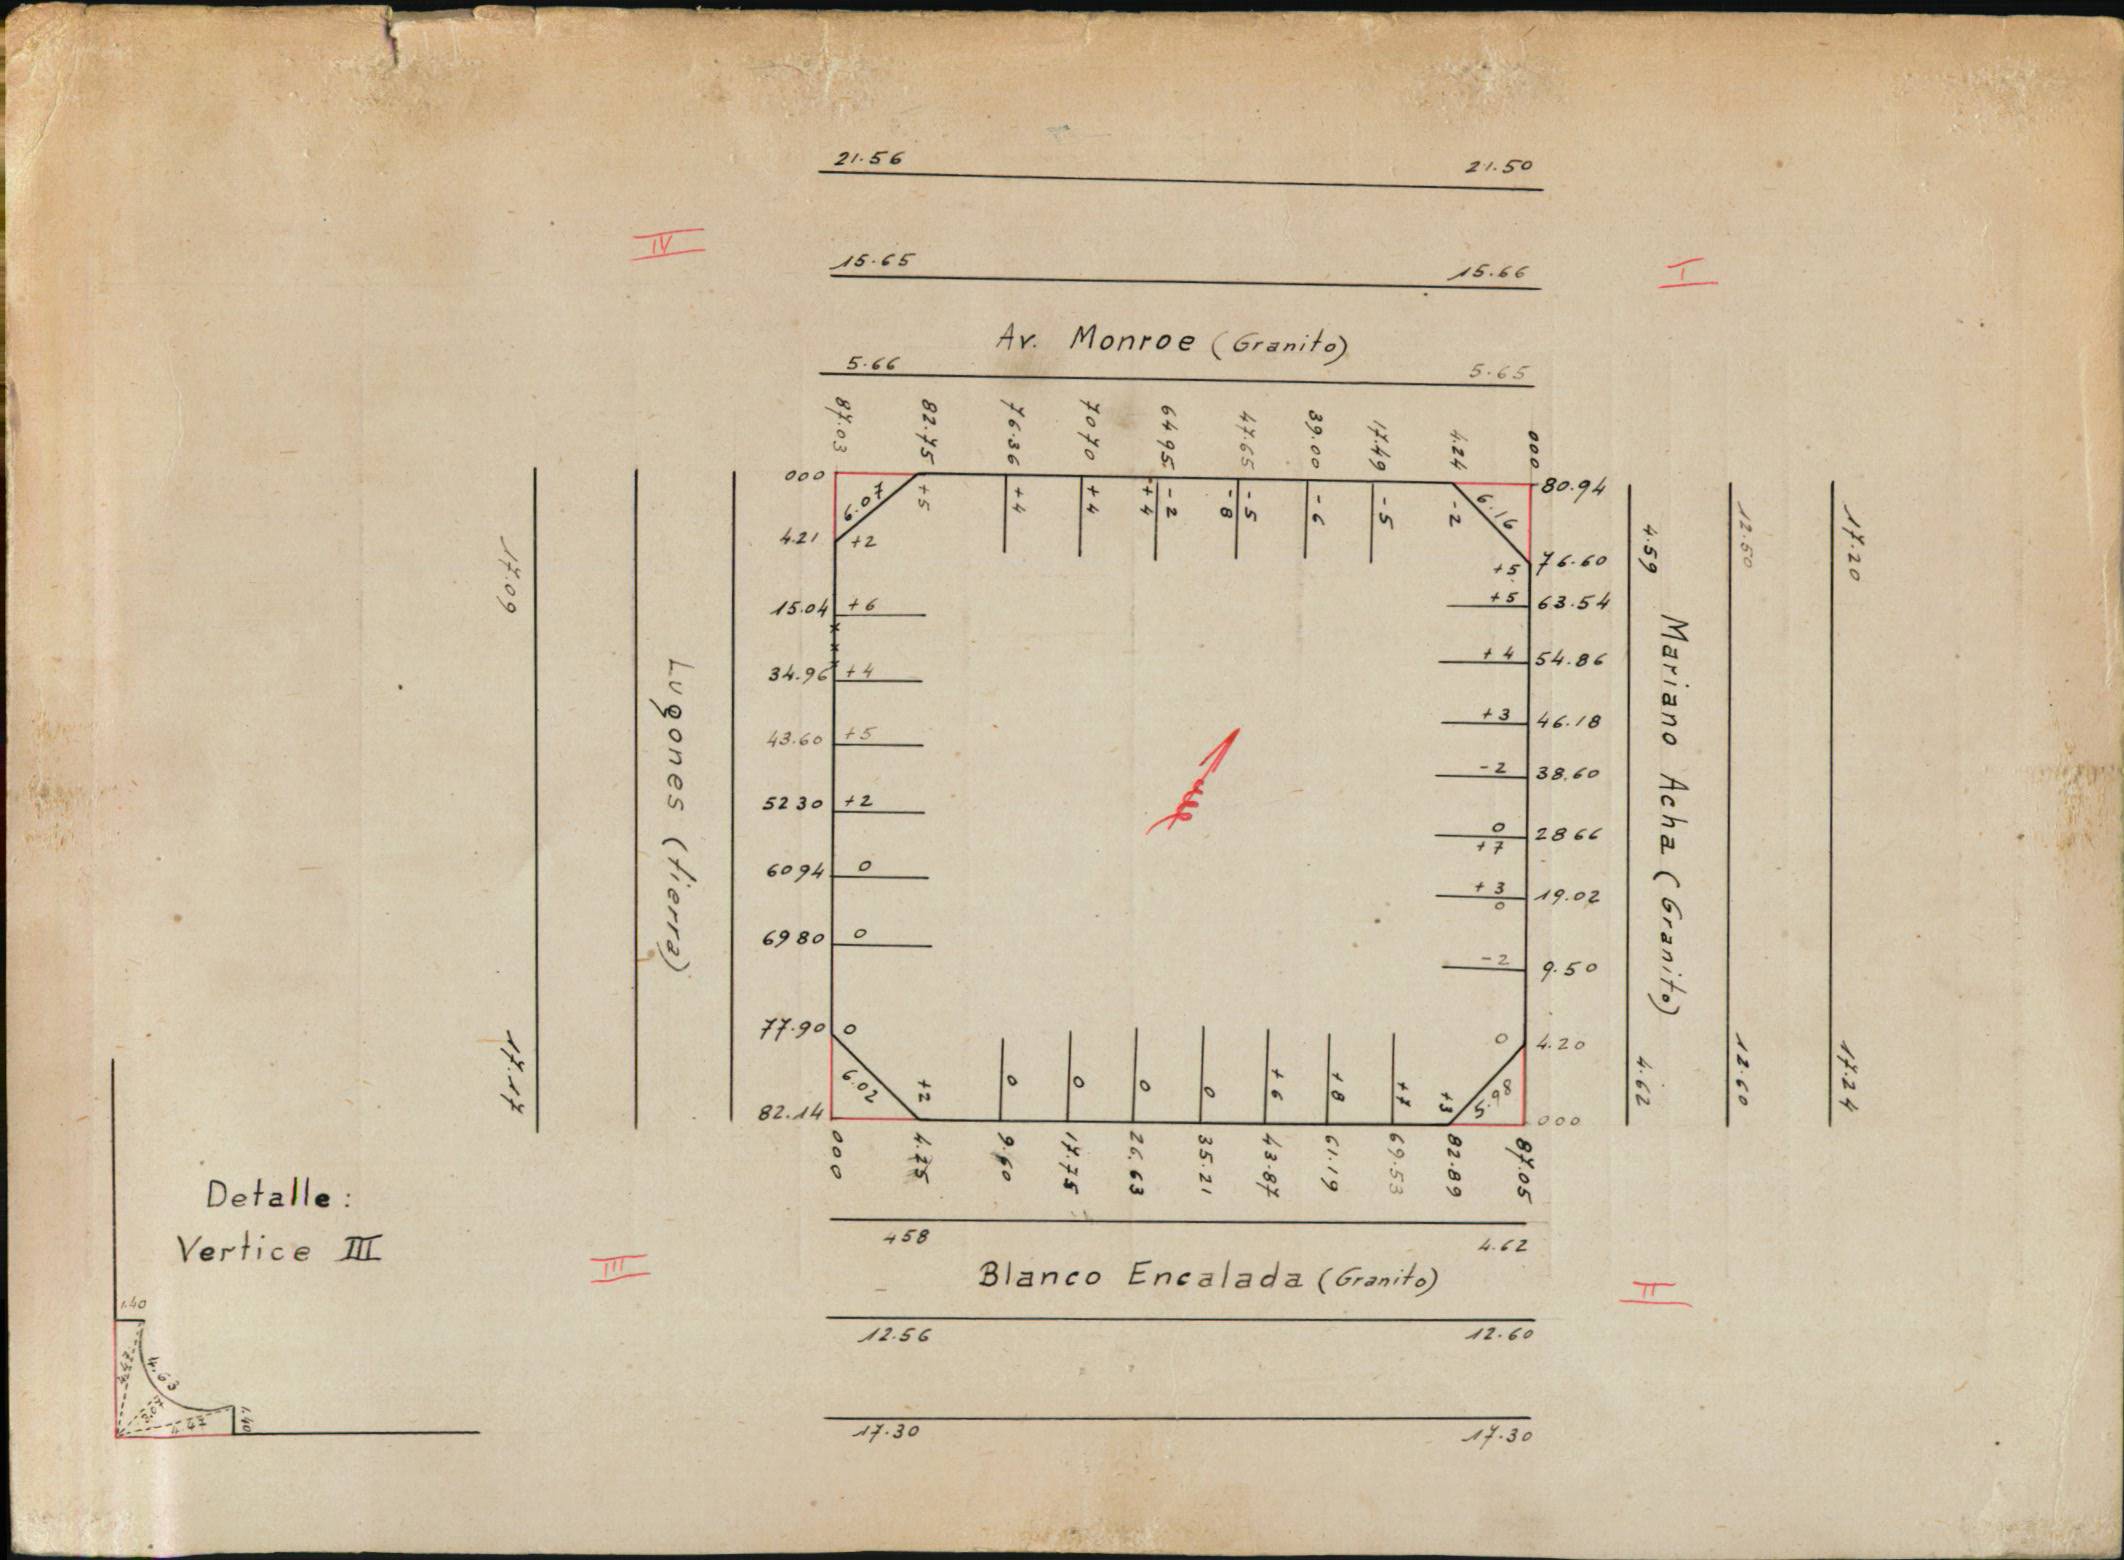 21.56 21.50
IV
15.65 15.66
I
Av. Monroe (Granito)
5.66 5.65
87.03 82.75 76.36 7070 6495 47.65 39.00 17.49 4.24 000
000 6.07 +5 +4 +4 +4 -2 -8 -5 -6 -5 -2 6.16 80.94
4.21 +2
+5 76.60
15.04 +6
+5 63.54
34.96 +4
+4 54.86
43.60 +5
+3 46.18
5230 +2
-2 38.60
6094 0
0 +7 2866
6980 0
+3 0 19.02
-2 9.50
77.90 0
0 4.20
82.14 6.02 +2 0 0 0 0 +6 +8 +7 +3 5.98 000
000 4.75 9.60 17.75 26.63 35.21 43.87 61.19 69.53 82.89 87.05
17.09 17.17
Lugones (tierra)
4.59 4.62
Mariano Acha (Granito)
12.50 12.60
17.20 17.24
458 4.62
Blanco Encalada (Granito)
III
II
12.56 12.60
17.30 17.30
Detalle:
Vertice III
1.40
4.63
3.07
4.47
1.40